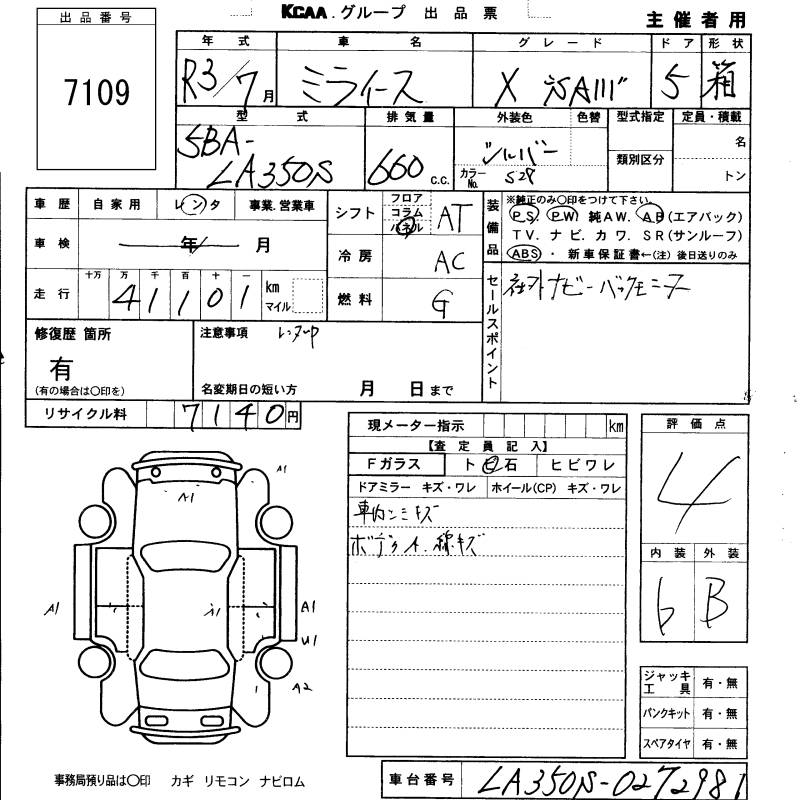 KCAA.グループ 出品票
主催者用
出品番号
7109
年式 車名 グレード ドア 形状
R3/7月 ミライース X SAⅢ 5 箱
型式 排気量 外装色 色替 型式指定 定員・積載
5BA-
LA350S 660 c.c. シルバー 名
カラーNo. S28 類別区分 トン
車歴 自家用 レンタ 事業.営業車
車検 年 月
走行 十万 万 千 百 十 一
41101 km マイル
シフト フロア コラム パネル AT
冷房 AC
燃料 G
装備品
※純正のみ○印をつけて下さい。
PS PW 純AW. AB(エアバック)
TV. ナビ. カワ. SR(サンルーフ)
ABS ・ 新車保証書←(注)後日送りのみ
セールスポイント
社外ナビー バックモニター
修復歴 箇所
有
(有の場合は○印を)
注意事項 レンタUP
名変期日の短い方 月 日まで
リサイクル料 7140円
現メーター指示 km
【査定員記入】
Fガラス ト 石 ヒビワレ
ドアミラー キズ・ワレ ホイール(CP) キズ・ワレ
車内シミキズ
ボディ 線キズ
評価点
4
内装 外装
6 B
ジャッキ工具 有・無
パンクキット 有・無
スペアタイヤ 有・無
A1
A1
A1
A1
U1
A2
事務局預り品は○印 カギ リモコン ナビロム
車台番号 LA350S-0272981